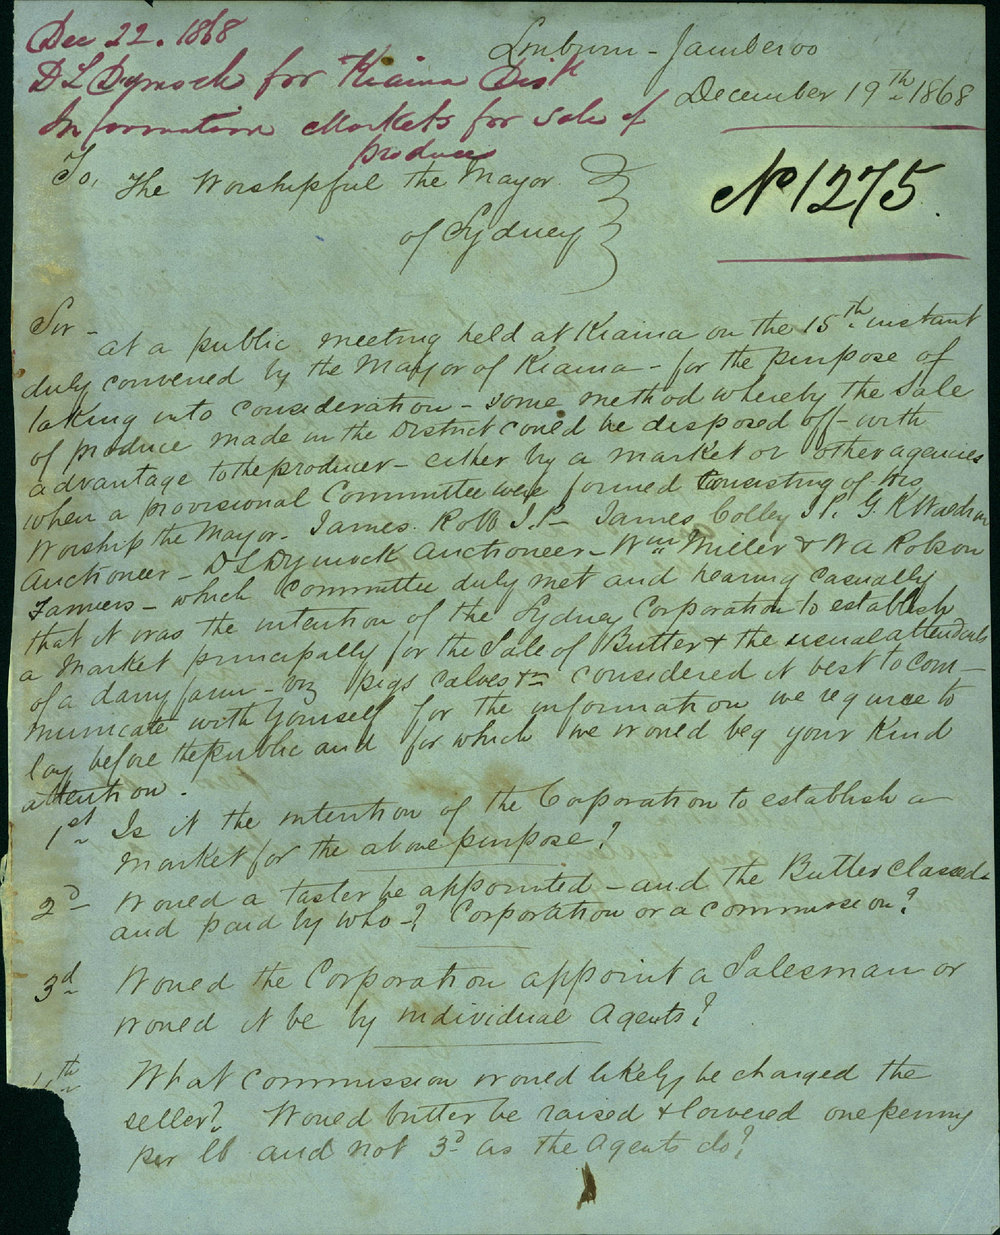 Dec 22. 1868
D L Dymock for Kiama Dist
Information Markets for Sale of
produce
Jamberoo
December 19th 1868
No 1275.
To, The Worshipful the Mayor
of Sydney
Sir -
at a public meeting held at Kiama on the 15th instant
duly convened by the Mayor of Kiama - for the purpose of
taking into consideration - some method whereby the Sale
of produce made in the District could be disposed off - with
advantage to the producer - either by a market or other agencies
when a provisional Committee were formed Consisting of His
Worship the Mayor - James Robb J.P - James Colley J P. G K Waldron
Auctioneer - D L Dymock Auctioneer - Wm Miller & W A Robson
Farmers - which committee duly met and hearing casually
that it was the intention of the Sydney Corporation to establish
a Market principally for the Sale of Butter & the usual attendants
of a dairy farm - viz pigs calves &c - considered it best to com-
municate with Yourself for the information we require to
lay before the public and for which we would beg your Kind
attention.
1st Is it the intention of the Corporation to establish a
market for the above purpose?
2d Would a taster be appointed - and the Butter classed -
and paid by who -? Corporation or a commission?
3d Would the Corporation appoint a Salesman or
would it be by individual Agents?
th What commission would likely be charged the
seller? Would butter be raised & lowered one penny
per lb and not 3d as the Agents do?